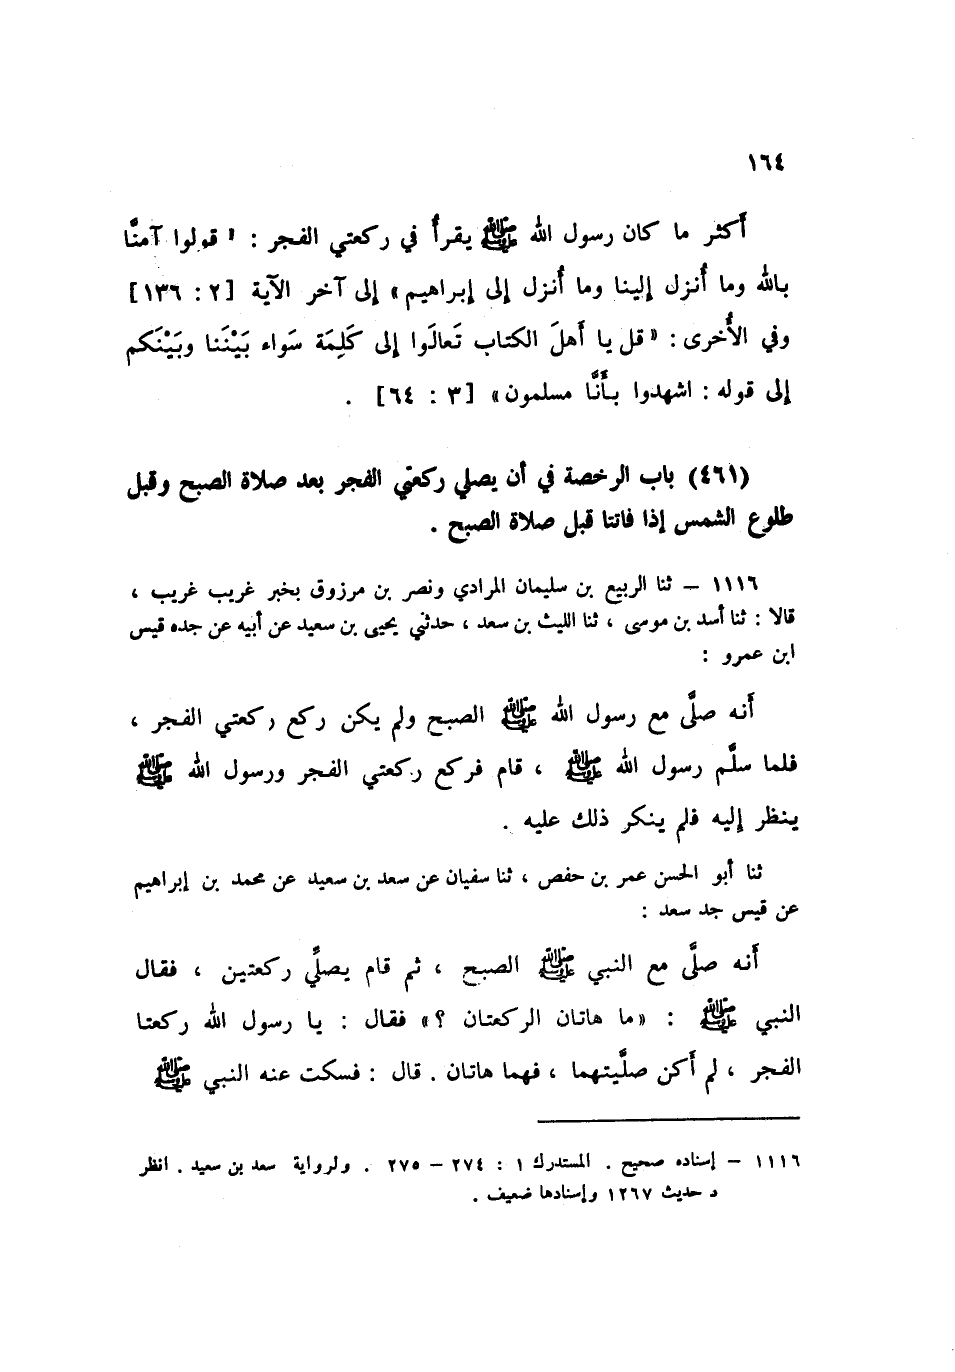 ١٦٤
أكثر ما كان رسول الله ﷺ يقرأ في ركعتي الفجر : « قولوا آمنَّا
بالله وما أُنزل إلينا وما أُنزل إلى إبراهيم » إلى آخر الآية [٢ : ١٣٦]
وفي الأُخرى : « قل يا أهلَ الكتاب تَعالَوا إلى كَلِمَة سَواء بَيْنَنا وبَيْنَكم
إلى قوله : اشهدوا بأَنَّا مسلمون » [٣ : ٦٤] .
(٤٦١) باب الرخصة في أن يصلي ركعتي الفجر بعد صلاة الصبح وقبل
طلوع الشمس إذا فاتتا قبل صلاة الصبح .
١١١٦ – ثنا الربيع بن سليمان المرادي ونصر بن مرزوق بخبر غريب غريب ،
قالا : ثنا أسد بن موسى ، ثنا الليث بن سعد ، حدثني يحيى بن سعيد عن أبيه عن جده قيس
ابن عمرو :
أَنه صلَّى مع رسول الله ﷺ الصبح ولم يكن ركع ركعتي الفجر ،
فلما سلَّم رسول الله ﷺ ، قام فركع ركعتي الفجر ورسول الله ﷺ
ينظر إليه فلم ينكر ذلك عليه .
ثنا أبو الحسن عمر بن حفص ، ثنا سفيان عن سعد بن سعيد عن محمد بن إبراهيم
عن قيس جد سعد :
أَنه صلَّى مع النبي ﷺ الصبح ، ثم قام يصلِّي ركعتين ، فقال
النبي ﷺ : « ما هاتان الركعتان ؟ » فقال : يا رسول الله ركعتا
الفجر ، لم أَكن صلَّيتهما ، فهما هاتان . قال : فسكت عنه النبي ﷺ
١١١٦ – إسناده صحيح . المستدرك ١ : ٢٧٤ – ٢٧٥ . ولرواية سعد بن سعيد . انظر
د حديث ١٢٦٧ وإسنادها ضعيف .